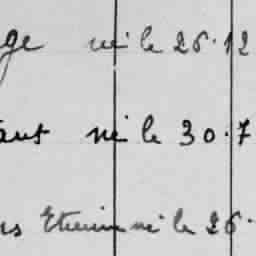 ge né le 26.12
ant né le 30.7
rs Etienne né le 26.